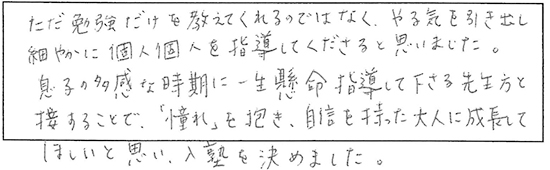 ただ勉強だけを教えてくれるのではなく、やる気を引き出し
細やかに個人個人を指導してくださると思いました。
息子の多感な時期に一生懸命指導して下さる先生方と
接することで、「憧れ」を抱き、自信を持った大人に成長して
ほしいと思い、入塾を決めました。